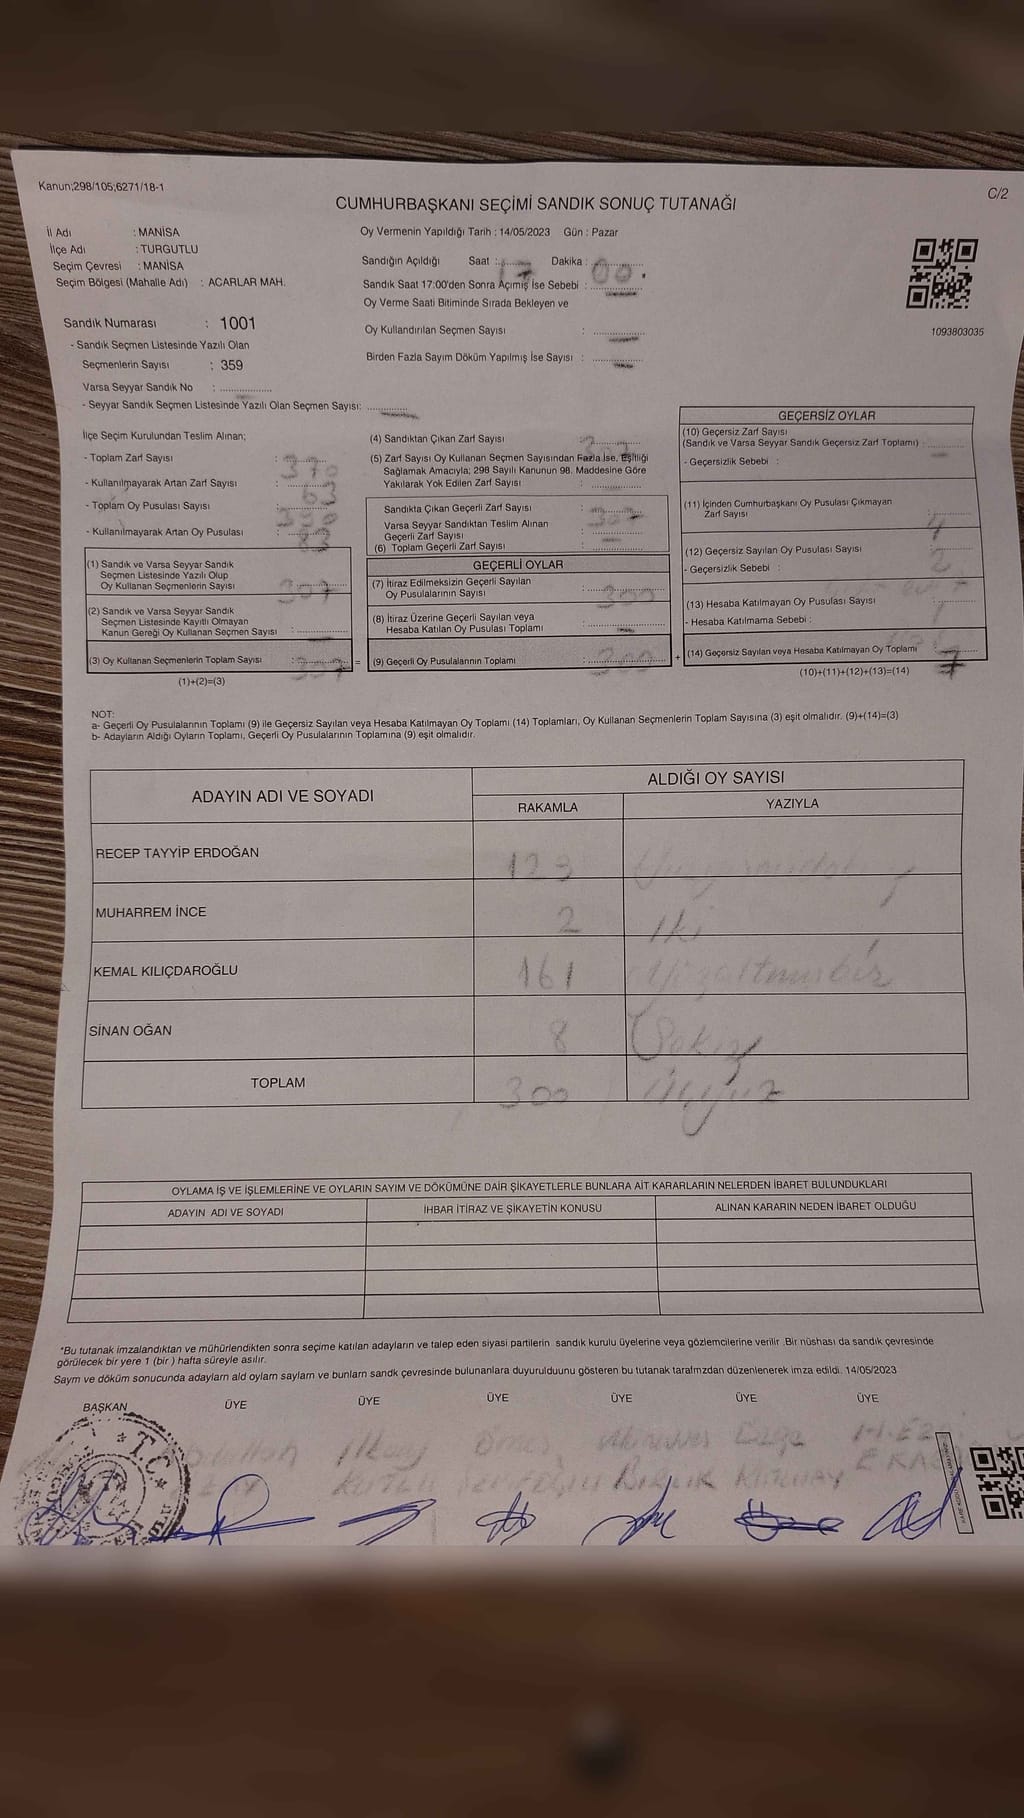 Kanun;298/105;6271/18-1
C/2
CUMHURBAŞKANI SEÇİMİ SANDIK SONUÇ TUTANAĞI
İl Adı : MANİSA
İlçe Adı : TURGUTLU
Seçim Çevresi : MANİSA
Seçim Bölgesi (Mahalle Adı) : ACARLAR MAH.
Oy Vermenin Yapıldığı Tarih : 14/05/2023 Gün : Pazar
Sandığın Açıldığı Saat : 17 Dakika : 00
Sandık Saat 17:00'den Sonra Açımış İse Sebebi : —
Oy Verme Saati Bitiminde Sırada Bekleyen ve
Oy Kullandırılan Seçmen Sayısı : —
Birden Fazla Sayım Döküm Yapılmış İse Sayısı : —
1093803035
Sandık Numarası : 1001
- Sandık Seçmen Listesinde Yazılı Olan
Seçmenlerin Sayısı : 359
Varsa Seyyar Sandık No : —
- Seyyar Sandık Seçmen Listesinde Yazılı Olan Seçmen Sayısı: —
İlçe Seçim Kurulundan Teslim Alınan;
- Toplam Zarf Sayısı : 370
- Kullanılmayarak Artan Zarf Sayısı : 63
- Toplam Oy Pusulası Sayısı :
- Kullanılmayarak Artan Oy Pusulası : 83
(1) Sandık ve Varsa Seyyar Sandık
Seçmen Listesinde Yazılı Olup
Oy Kullanan Seçmenlerin Sayısı : 307
(2) Sandık ve Varsa Seyyar Sandık
Seçmen Listesinde Kayıtlı Olmayan
Kanun Gereği Oy Kullanan Seçmen Sayısı : —
(3) Oy Kullanan Seçmenlerin Toplam Sayısı : 307 =
(1)+(2)=(3)
(4) Sandıktan Çıkan Zarf Sayısı : 307
(5) Zarf Sayısı Oy Kullanan Seçmen Sayısından Fazla İse, Eşitliği
Sağlamak Amacıyla; 298 Sayılı Kanunun 98. Maddesine Göre
Yakılarak Yok Edilen Zarf Sayısı : —
Sandıkta Çıkan Geçerli Zarf Sayısı : 307
Varsa Seyyar Sandıktan Teslim Alınan
Geçerli Zarf Sayısı : —
(6) Toplam Geçerli Zarf Sayısı :
GEÇERLİ OYLAR
(7) İtiraz Edilmeksizin Geçerli Sayılan
Oy Pusulalarının Sayısı : 300
(8) İtiraz Üzerine Geçerli Sayılan veya
Hesaba Katılan Oy Pusulası Toplamı : —
(9) Geçerli Oy Pusulalarının Toplamı : 300 +
GEÇERSİZ OYLAR
(10) Geçersiz Zarf Sayısı
(Sandık ve Varsa Seyyar Sandık Geçersiz Zarf Toplamı) : —
- Geçersizlik Sebebi :
(11) İçinden Cumhurbaşkanı Oy Pusulası Çıkmayan
Zarf Sayısı : 4
(12) Geçersiz Sayılan Oy Pusulası Sayısı : 2
- Geçersizlik Sebebi :
(13) Hesaba Katılmayan Oy Pusulası Sayısı : 1
- Hesaba Katılmama Sebebi :
(14) Geçersiz Sayılan veya Hesaba Katılmayan Oy Toplamı : 7
(10)+(11)+(12)+(13)=(14)
NOT:
a- Geçerli Oy Pusulalarının Toplamı (9) ile Geçersiz Sayılan veya Hesaba Katılmayan Oy Toplamı (14) Toplamları, Oy Kullanan Seçmenlerin Toplam Sayısına (3) eşit olmalıdır. (9)+(14)=(3)
b- Adayların Aldığı Oyların Toplamı, Geçerli Oy Pusulalarının Toplamına (9) eşit olmalıdır.
ADAYIN ADI VE SOYADI
ALDIĞI OY SAYISI
RAKAMLA YAZIYLA
RECEP TAYYİP ERDOĞAN 123
MUHARREM İNCE 2 İki
KEMAL KILIÇDAROĞLU 161 Yüzaltmışbir
SİNAN OĞAN 8 Sekiz
TOPLAM 300 Üçyüz
OYLAMA İŞ VE İŞLEMLERİNE VE OYLARIN SAYIM VE DÖKÜMÜNE DAİR ŞİKAYETLERLE BUNLARA AİT KARARLARIN NELERDEN İBARET BULUNDUKLARI
ADAYIN ADI VE SOYADI
İHBAR İTİRAZ VE ŞİKAYETİN KONUSU
ALINAN KARARIN NEDEN İBARET OLDUĞU
*Bu tutanak imzalandıktan ve mühürlendikten sonra seçime katılan adayların ve talep eden siyasi partilerin sandık kurulu üyelerine veya gözlemcilerine verilir .Bir nüshası da sandık çevresinde
görülecek bir yere 1 (bir ) hafta süreyle asılır.
Saym ve döküm sonucunda adaylarn ald oylarn saylarn ve bunlarn sandk çevresinde bulunanlara duyurulduunu gösteren bu tutanak tarafmzdan düzenlenerek imza edildi. 14/05/2023
BAŞKAN ÜYE ÜYE ÜYE ÜYE ÜYE ÜYE
İlkay Ömer Özge
BİRLİK
T.C.